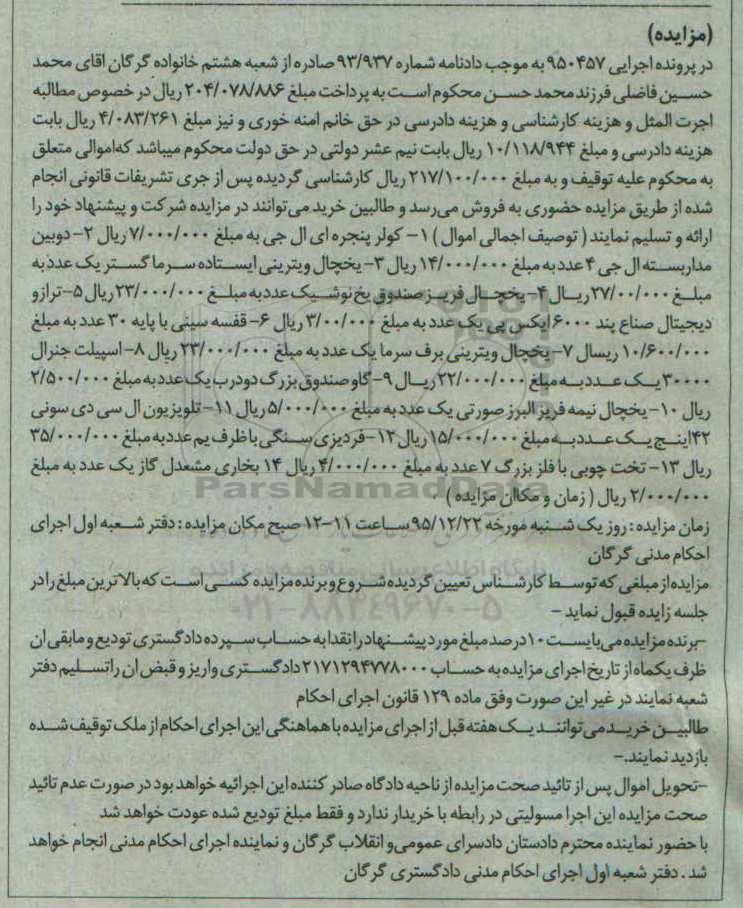 (مزایده)
در پرونده اجرایی ۹۵۰۴۵۷ به موجب دادنامه شماره ۹۳/۹۳۷ صادره از شعبه هشتم خانواده گرگان اقای محمد
حسین فاضلی فرزند محمد حسن محکوم است به پرداخت مبلغ ۲۰۴/۰۷۸/۸۸۶ ریال در خصوص مطالبه
اجرت المثل و هزینه کارشناسی و هزینه دادرسی در حق خانم امنه خوری و نیز مبلغ ۴/۰۸۳/۲۶۱ ریال بابت
هزینه دادرسی و مبلغ ۱۰/۱۱۸/۹۴۴ ریال بابت نیم عشر دولتی در حق دولت محکوم میباشد که اموالی متعلق
به محکوم علیه توقیف و به مبلغ ۲۱۷/۱۰۰/۰۰۰ ریال کارشناسی گردیده پس از جری تشریفات قانونی انجام
شده از طریق مزایده حضوری به فروش می‌رسد و طالبین خرید می‌توانند در مزایده شرکت و پیشنهاد خود را
ارائه و تسلیم نمایند ( توصیف اجمالی اموال ) ۱- کولر پنجره ای ال جی به مبلغ ۷/۰۰۰/۰۰۰ ریال ۲- دوبین
مداربسته ال جی ۴ عدد به مبلغ ۱۴/۰۰۰/۰۰۰ ریال ۳- یخچال ویترینی ایستاده سرما گستر یک عدد به
مبلغ ۲۷/۰۰/۰۰۰ ریال ۴- یخچال فریزر صندوق یخ نوشیک عدد به مبلغ ۲۳/۰۰۰/۰۰۰ ریال ۵- ترازو
دیجیتال صناع پند ۶۰۰۰ ایکس پی یک عدد به مبلغ ۳/۰۰/۰۰۰ ریال ۶- قفسه سینی با پایه ۳۰ عدد به مبلغ
۱۰/۶۰۰/۰۰۰ ریسال ۷- یخچال ویترینی برف سرما یک عدد به مبلغ ۲۳/۰۰۰/۰۰۰ ریال ۸- اسپیلت جنرال
۳۰۰۰۰ یک عدد به مبلغ ۲۲/۰۰۰/۰۰۰ ریال ۹- گاو صندوق بزرگ دودرب یک عدد به مبلغ ۲/۵۰۰/۰۰۰
ریال ۱۰- یخچال نیمه فریز البرز صورتی یک عدد به مبلغ ۵/۰۰۰/۰۰۰ ریال ۱۱- تلویزیون ال سی دی سونی
۴۲ اینچ یک عدد به مبلغ ۱۵/۰۰۰/۰۰۰ ریال ۱۲- فر دیزی سنگی با ظرف یم عدد به مبلغ ۳۵/۰۰۰/۰۰۰
ریال ۱۳- تخت چوبی با فلز بزرگ ۷ عدد به مبلغ ۴/۰۰۰/۰۰۰ ریال ۱۴ بخاری مشعدل گاز یک عدد به مبلغ
۲/۰۰۰/۰۰۰ ریال ( زمان و مکاان مزایده )
ParsNamadData
زمان مزایده : روز یک شنبه مورخه ۹۵/۱۲/۲۲ ساعت ۱۱-۱۲ صبح مکان مزایده : دفتر شعبه اول اجرای
احکام مدنی گرگان
پایگاه اطلاع رسانی مناقصه و مزایده
مزایده از مبلغی که توسط کارشناس تعیین گردیده شروع و برنده مزایده کسی است که بالاترین مبلغ را در
جلسه زایده قبول نماید -
۰۲۱-۸۸۳۴۹۶۷۰-۵
-برنده مزایده می‌بایست ۱۰ درصد مبلغ مورد پیشنهاد را نقدا به حساب سپرده دادگستری تودیع و مابقی ان
ظرف یکماه از تاریخ اجرای مزایده به حساب ۲۱۷۱۲۹۴۷۷۸۰۰۰ دادگستری واریز و قبض ان را تسلیم دفتر
شعبه نمایند در غیر این صورت وفق ماده ۱۲۹ قانون اجرای احکام
طالبین خرید می‌توانند یک هفته قبل از اجرای مزایده با هماهنگی این اجرای احکام از ملک توقیف شده
بازدید نمایند.-
-تحویل اموال پس از تائید صحت مزایده از ناحیه دادگاه صادر کننده این اجرائیه خواهد بود در صورت عدم تائید
صحت مزایده این اجرا مسولیتی در رابطه با خریدار ندارد و فقط مبلغ تودیع شده عودت خواهد شد
با حضور نماینده محترم دادستان دادسرای عمومی‌و انقلاب گرگان و نماینده اجرای احکام مدنی انجام خواهد
شد . دفتر شعبه اول اجرای احکام مدنی دادگستری گرگان